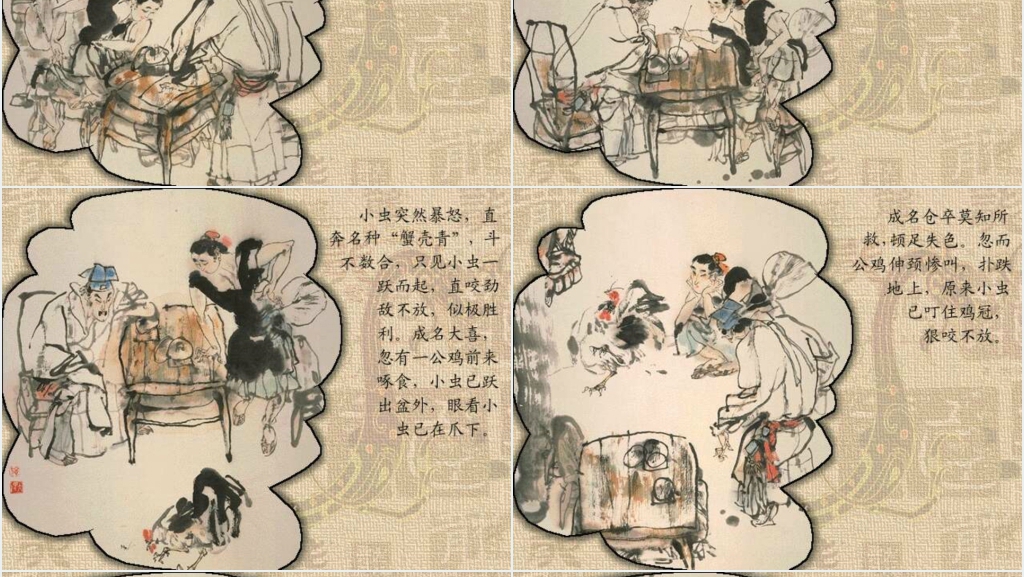 小虫突然暴怒，直
奔名种“蟹壳青”，斗
不数合，只见小虫一
跃而起，直咬劲
敌不放，似极胜
利。成名大喜，
忽有一公鸡前来
啄食，小虫已跃
出盆外，眼看小
虫已在爪下。
成名仓卒莫知所
救，顿足失色。忽而
公鸡伸颈惨叫，扑跌
地上，原来小虫
已叮住鸡冠，
狠咬不放。